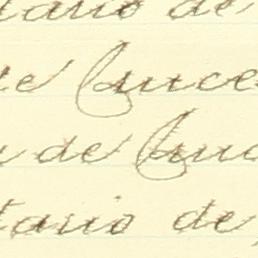 tario de
de Cruce
de Cruc
tario de